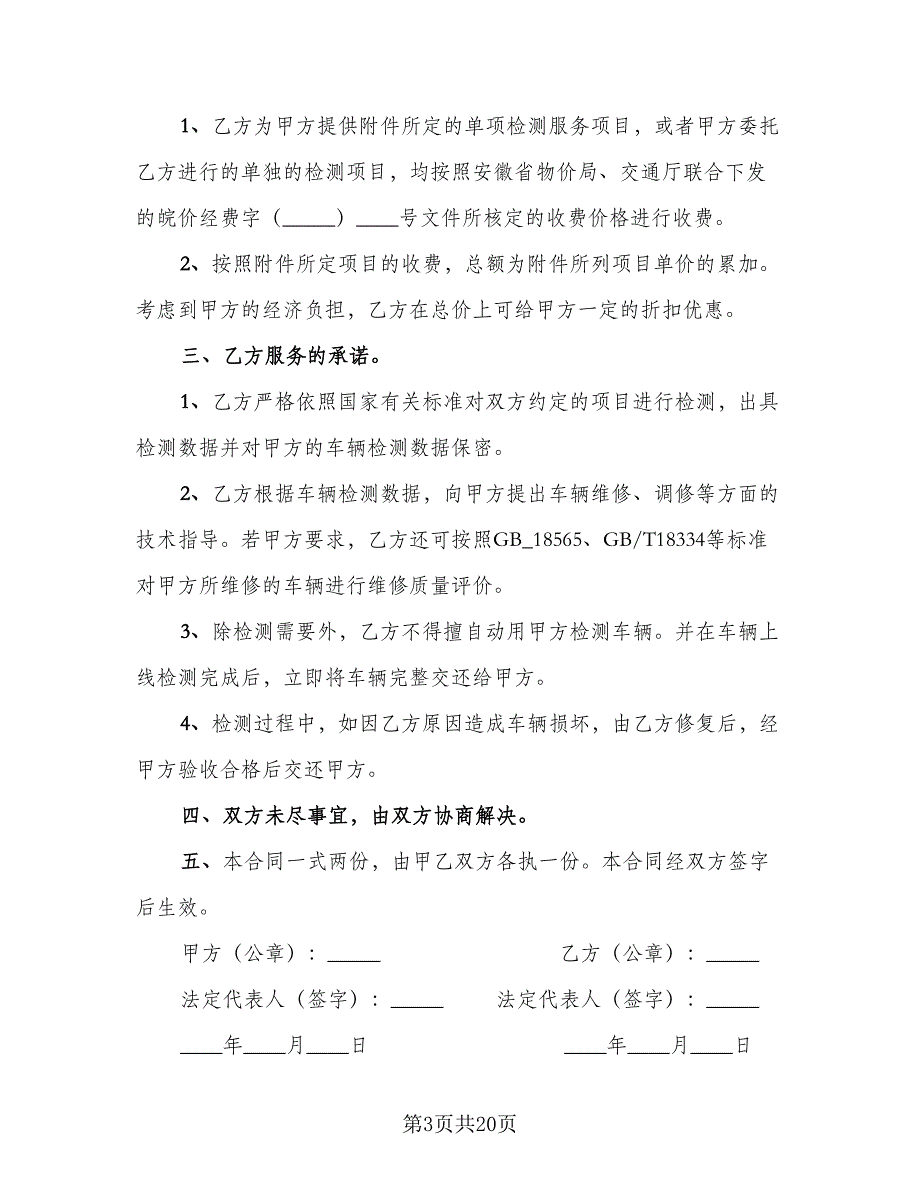 1、乙方为甲方提供附件所定的单项检测服务项目，或者甲方委托
乙方进行的单独的检测项目，均按照安徽省物价局、交通厅联合下发
的皖价经费字（_____）____号文件所核定的收费价格进行收费。
2、按照附件所定项目的收费，总额为附件所列项目单价的累加。
考虑到甲方的经济负担，乙方在总价上可给甲方一定的折扣优惠。
三、乙方服务的承诺。
1、乙方严格依照国家有关标准对双方约定的项目进行检测，出具
检测数据并对甲方的车辆检测数据保密。
2、乙方根据车辆检测数据，向甲方提出车辆维修、调修等方面的
技术指导。若甲方要求，乙方还可按照GB_18565、GB/T18334等标准
对甲方所维修的车辆进行维修质量评价。
3、除检测需要外，乙方不得擅自动用甲方检测车辆。并在车辆上
线检测完成后，立即将车辆完整交还给甲方。
4、检测过程中，如因乙方原因造成车辆损坏，由乙方修复后，经
甲方验收合格后交还甲方。
四、双方未尽事宜，由双方协商解决。
五、本合同一式两份，由甲乙双方各执一份。本合同经双方签字
后生效。
甲方（公章）：_____ 乙方（公章）：_____
法定代表人（签字）：_____ 法定代表人（签字）：_____
____年____月____日 ____年____月____日
第3页共20页